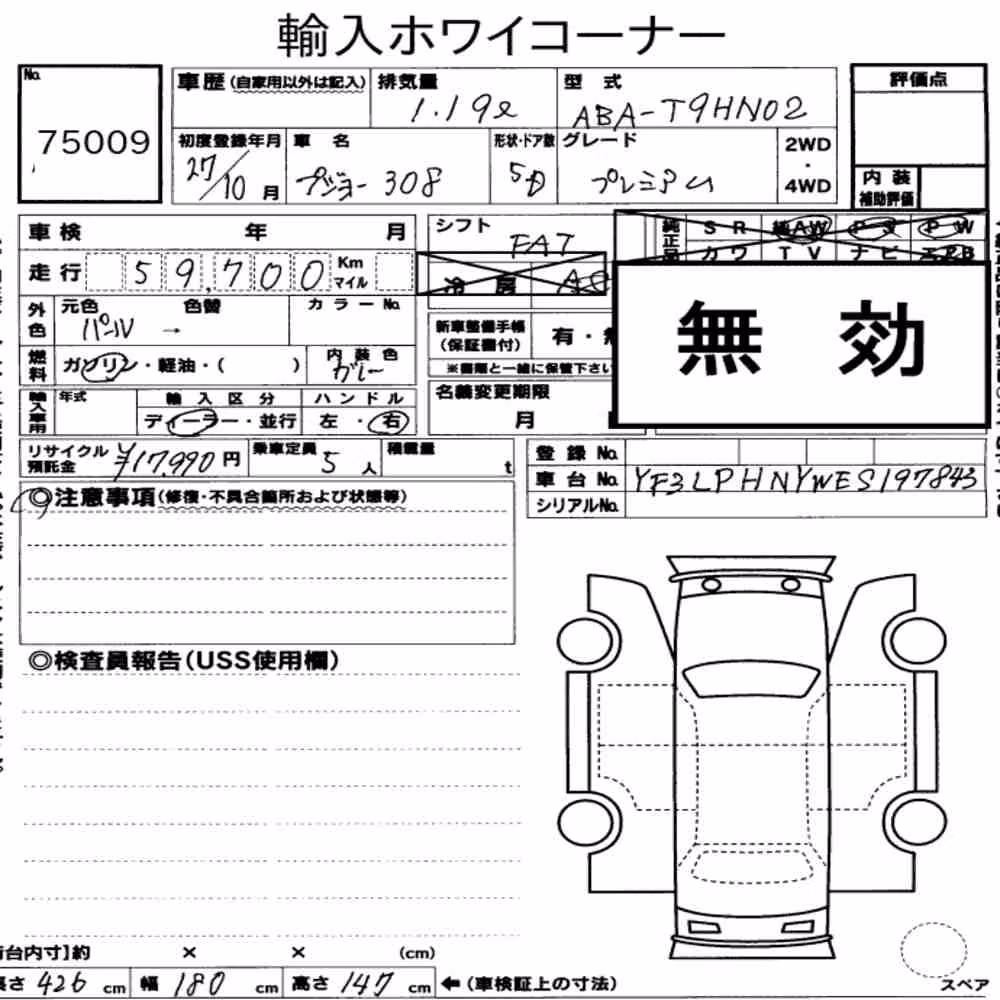 輸入ホワイコーナー
No. 75009
車歴(自家用以外は記入) 排気量 1.19ℓ 型式 ABA-T9HN02 評価点
初度登録年月 27/10月 車名 プジョー308 形状・ドア数 5D グレード プレミアム 2WD・4WD 内装補助評価
車検 年 月 シフト FAT 純正品 SR 純AW PS PW
カワ TV ナビ エアB
走行 59,700 Km マイル 冷房 AC
外色 元色 パール → 色替 カラーNo. 新車整備手帳(保証書付) 有・
燃料 ガソリン・軽油・( ) 内装色 グレー ※書類と一緒に保管下さい
無効
輸入車用 年式 輸入区分 ディーラー・並行 ハンドル 左・右 名義変更期限 月
リサイクル預託金 ¥17,990円 乗車定員 5人 積載量 t 登録No.
車台No. YF3LPHNYWES197843
シリアルNo.
◎注意事項(修復・不具合箇所および状態等)
◎検査員報告(USS使用欄)
荷台内寸】約 × × (cm)
長さ 426 cm 幅 180 cm 高さ 147 cm ←(車検証上の寸法)
スペア